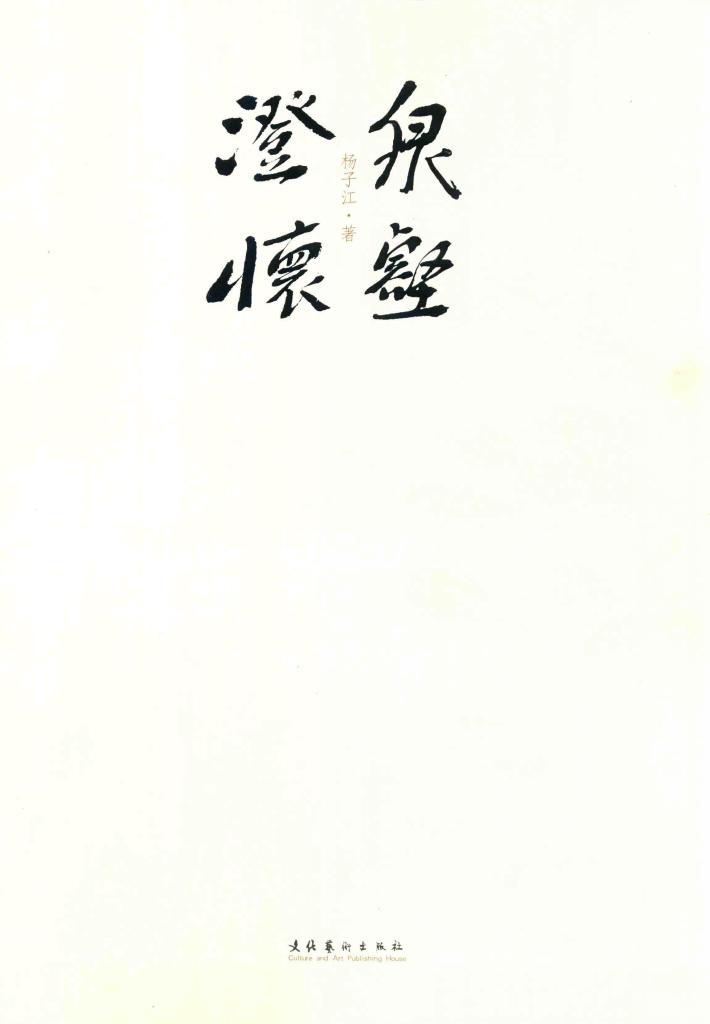 泉壑
澄懷
杨子江·著
文化藝術出版社
Culture and Art Publishing House